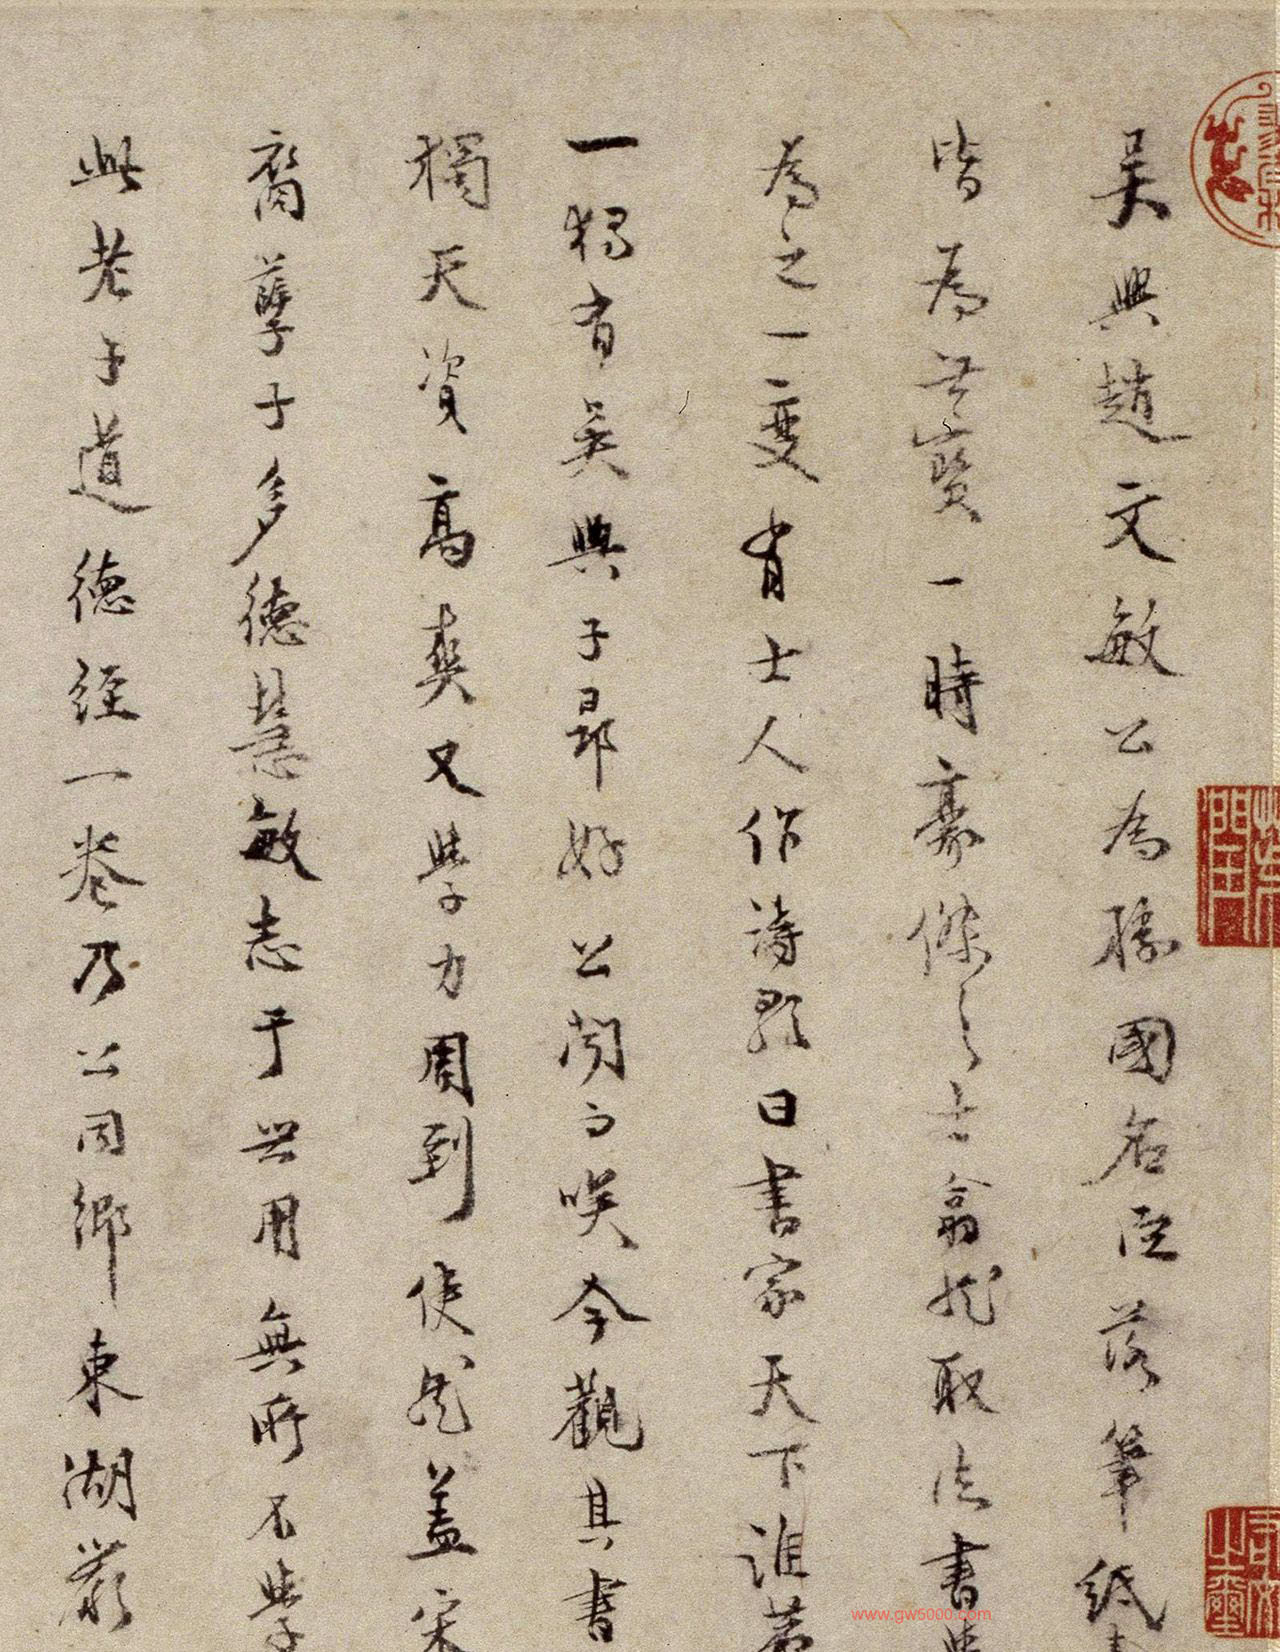 吳興趙文敏公為勝國名臣落筆紙
皆為世寶一時豪傑之士翕然取法書學
為之一變有士人作詩題曰書家天下誰第
一獨有吳興子昂好公聞而咲今觀其書
獨天資高爽又學力周到使然蓋宋
裔孽子多德慧敏志于世用無所不學
此老子道德經一卷乃公同鄉東湖嚴
www.gw5000.com